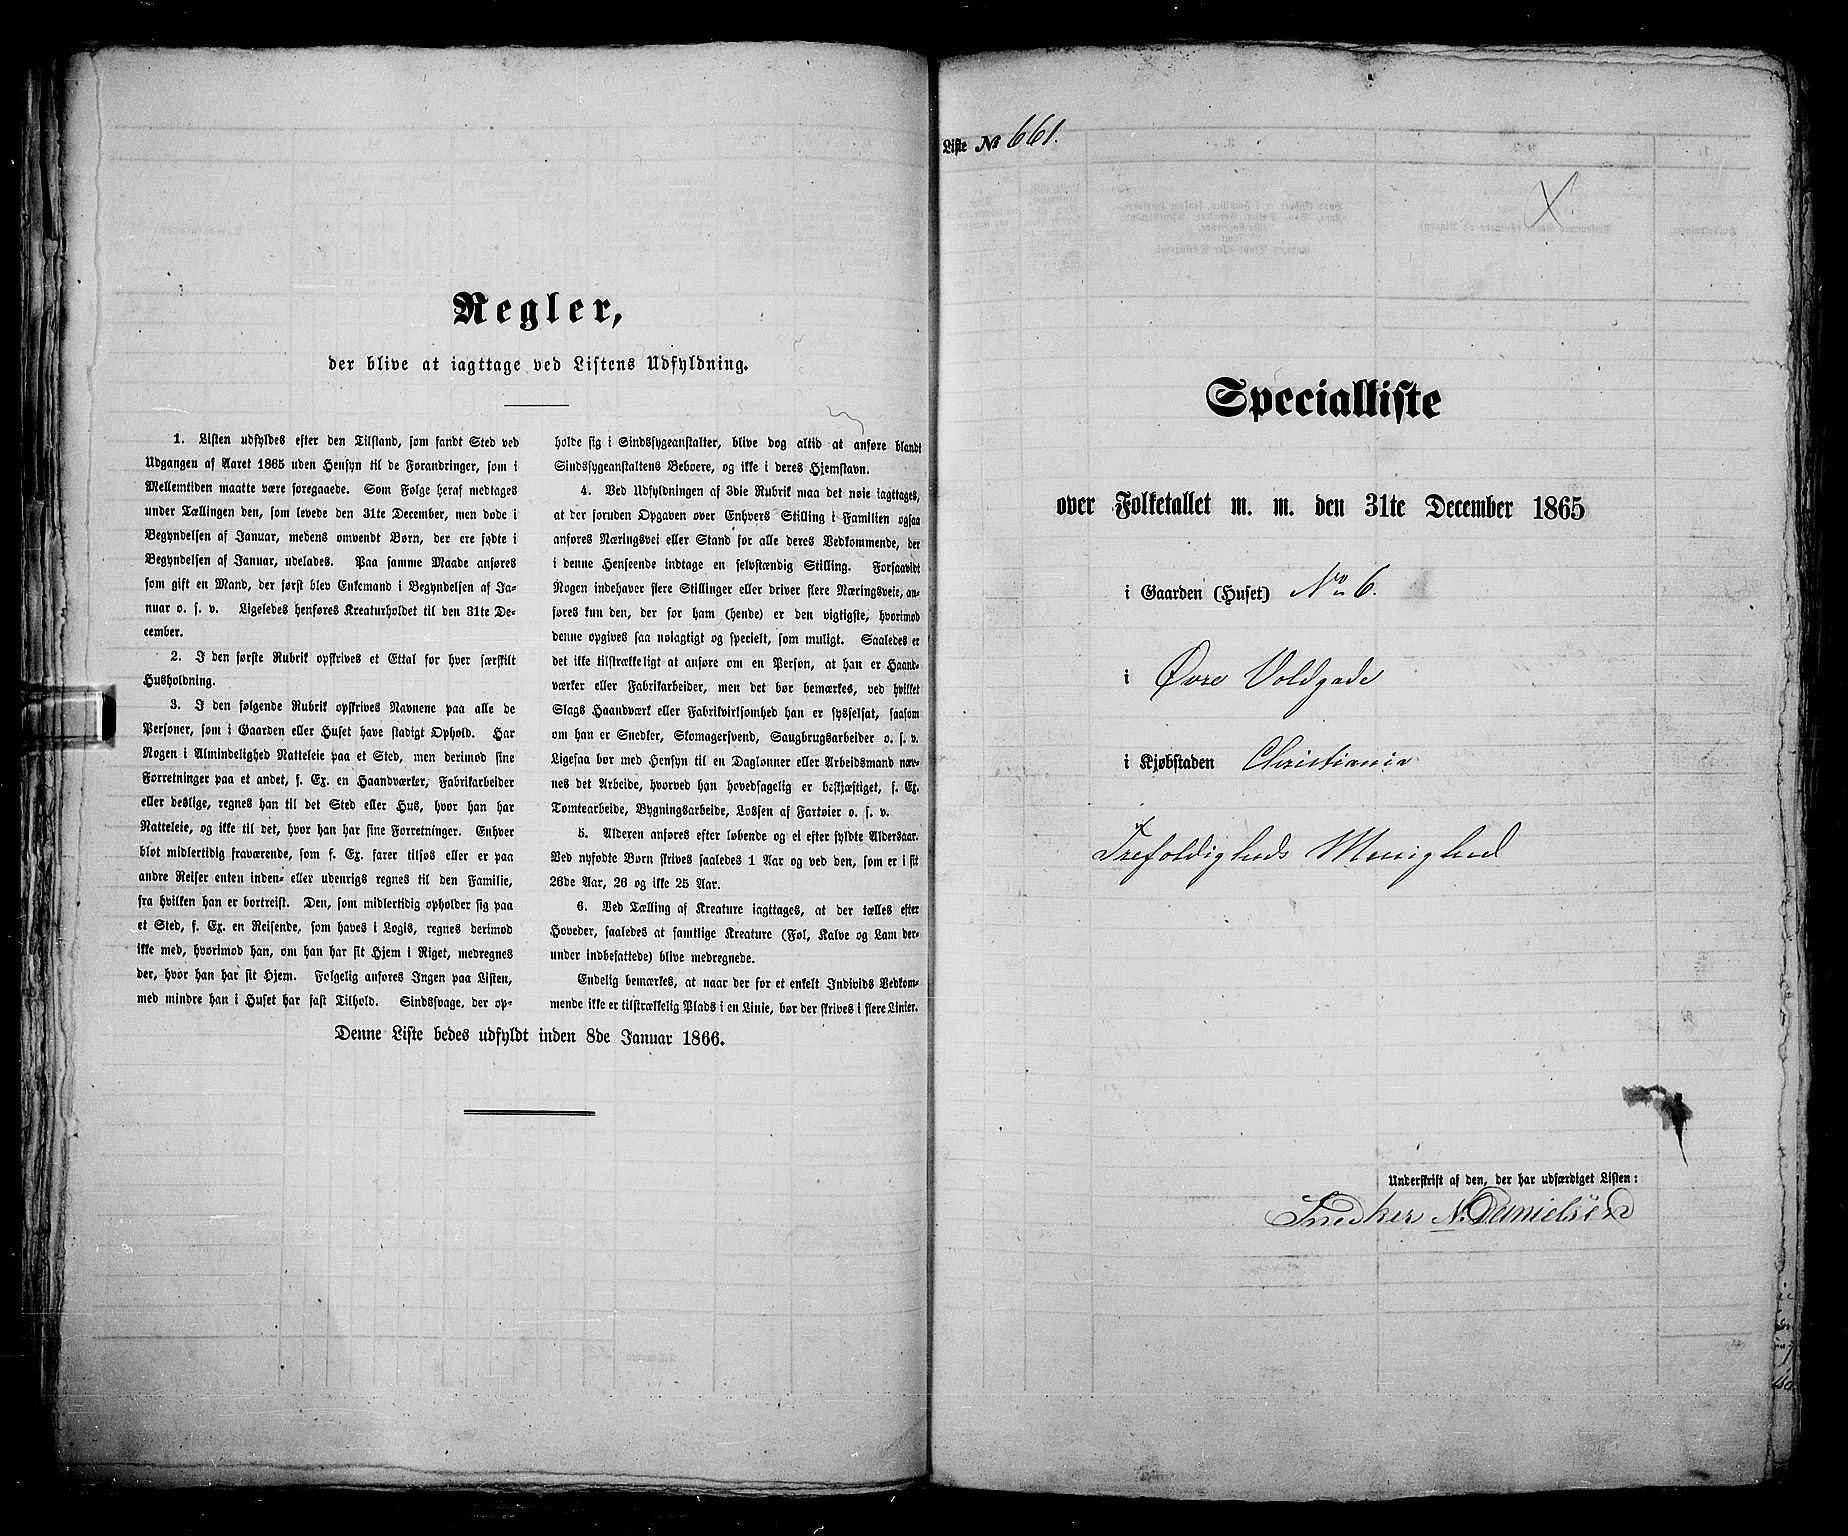 Regler,
der blive at iagttage ved Listens Udfyldning.
1. Listen udfyldes efter den Tilstand, som fandt Sted ved
Udgangen af Aaret 1865 uden Hensyn til de Forandringer, som i
Mellemtiden maatte være foregaaede. Som Følge heraf medtages
under Tællingen den, som levede den 31te December, men døde i
Begyndelsen af Januar, medens omvendt Børn, der ere fødte i
Begyndelsen af Januar, udelades. Paa samme Maade anføres
som gift en Mand, der først blev Enkemand i Begyndelsen af Ja-
nuar o. s. v. Ligeledes henføres Kreaturholdet til den 31te De-
cember.
2. I den første Rubrik opskrives et Ettal for hver særskilt
Husholdning.
3. I den følgende Rubrik opskrives Navnene paa alle de
Personer, som i Gaarden eller Huset have stadigt Ophold. Har
Nogen i Almindelighed Natteleie paa et Sted, men derimod sine
Forretninger paa et andet, f. Ex. en Haandværker, Fabrikarbeider
eller deslige, regnes han til det Sted eller Hus, hvor han har
Natteleie, og ikke til det, hvor han har sine Forretninger. Enhver
blot midlertidig fraværende, som f. Ex. farer tilsøs eller er paa
andre Reiser enten inden- eller udenrigs regnes til den Familie,
fra hvilken han er bortreist. Den, som midlertidig opholder sig paa
et Sted, f. Ex. en Reisende, som haves i Logis, regnes derimod
ikke med, hvorimod han, om han har sit Hjem i Riget, medregnes
der, hvor han har sit Hjem. Følgelig anføres Ingen paa Listen,
med mindre han i Huset har fast Tilhold. Sindssvage, der op-
holde sig i Sindssygeanstalter, blive dog altid at anføre blandt
Sindssygeanstaltens Beboere, og ikke i deres Hjemstavn.
4. Ved Udfyldningen af 3die Rubrik maa det nøie iagttages,
at der foruden Opgaven over Enhvers Stilling i Familien ogsaa
anføres Næringsvei eller Stand for alle deres Vedkommende, der
i denne Henseende indtage en selvstændig Stilling. Forsaavidt
Nogen indehaver flere Stillinger eller driver flere Næringsveie, an-
føres kun den, der for ham (hende) er den vigtigste, hvorimod
denne opgives saa nøiagtigt og specielt, som muligt. Saaledes er
det ikke tilstrækkeligt at anføre om en Person, at han er Haand-
værker eller Fabrikarbeider, men det bør bemærkes, ved hvilket
Slags Haandværk eller Fabrikvirksomhed han er sysselsat, saasom
om han er Snedker, Skomagersvend, Saugbrugsarbeider o. s. v.
Ligesaa bør med Hensyn til en Dagløner eller Arbeidsmand næv-
nes det Arbeide, hvorved han hovedsagelig er beskjæftiget, f. Ex.
Tomtearbeide, Bygningsarbeide, Lossen af Fartøier o. s. v.
5. Alderen anføres efter løbende og ei efter fyldte Aldersaar.
Ved nyfødte Børn skrives saaledes 1 Aar og ved den, som er i sit
26de Aar, 26 og ikke 25 Aar.
6. Ved Tælling af Kreature iagttages, at der tælles efter
Hoveder, saaledes at samtlige Kreature (Føl, Kalve og Lam der-
under indbefattede) blive medregnede.
Endelig bemærkes, at naar der for et enkelt Individs Vedkom-
mende ikke er tilstrækkelig Plads i en Linie, bør der skrives i flere Linier.
Denne Liste bedes udfyldt inden 8de Januar 1866.
Liste No 661.
X
Specialliste
over Folketallet m. m. den 31te December 1865
i Gaarden (Huset) No 6.
i Øvre Voldgade
i Kjøbstaden Christiania
Trefoldigheds Menighed
Underskrift af den, der har udfærdiget Listen:
Snedker N. Danielsen